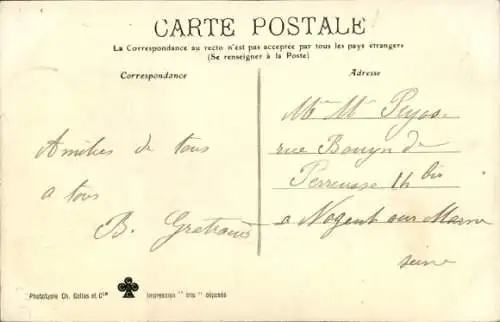 CARTE POSTALE
La Correspondance au recto n'est pas acceptée par tous les pays étrangers
(Se renseigner à la Poste)
Correspondance
Adresse
Amitiés de tous
a tous
B.
Mr Mr
rue Bauyn de
Perreuse 14 bis
a Nogent sur Marne
seine
Phototypie Ch. Collas et Cie
Impression "Iris" déposée